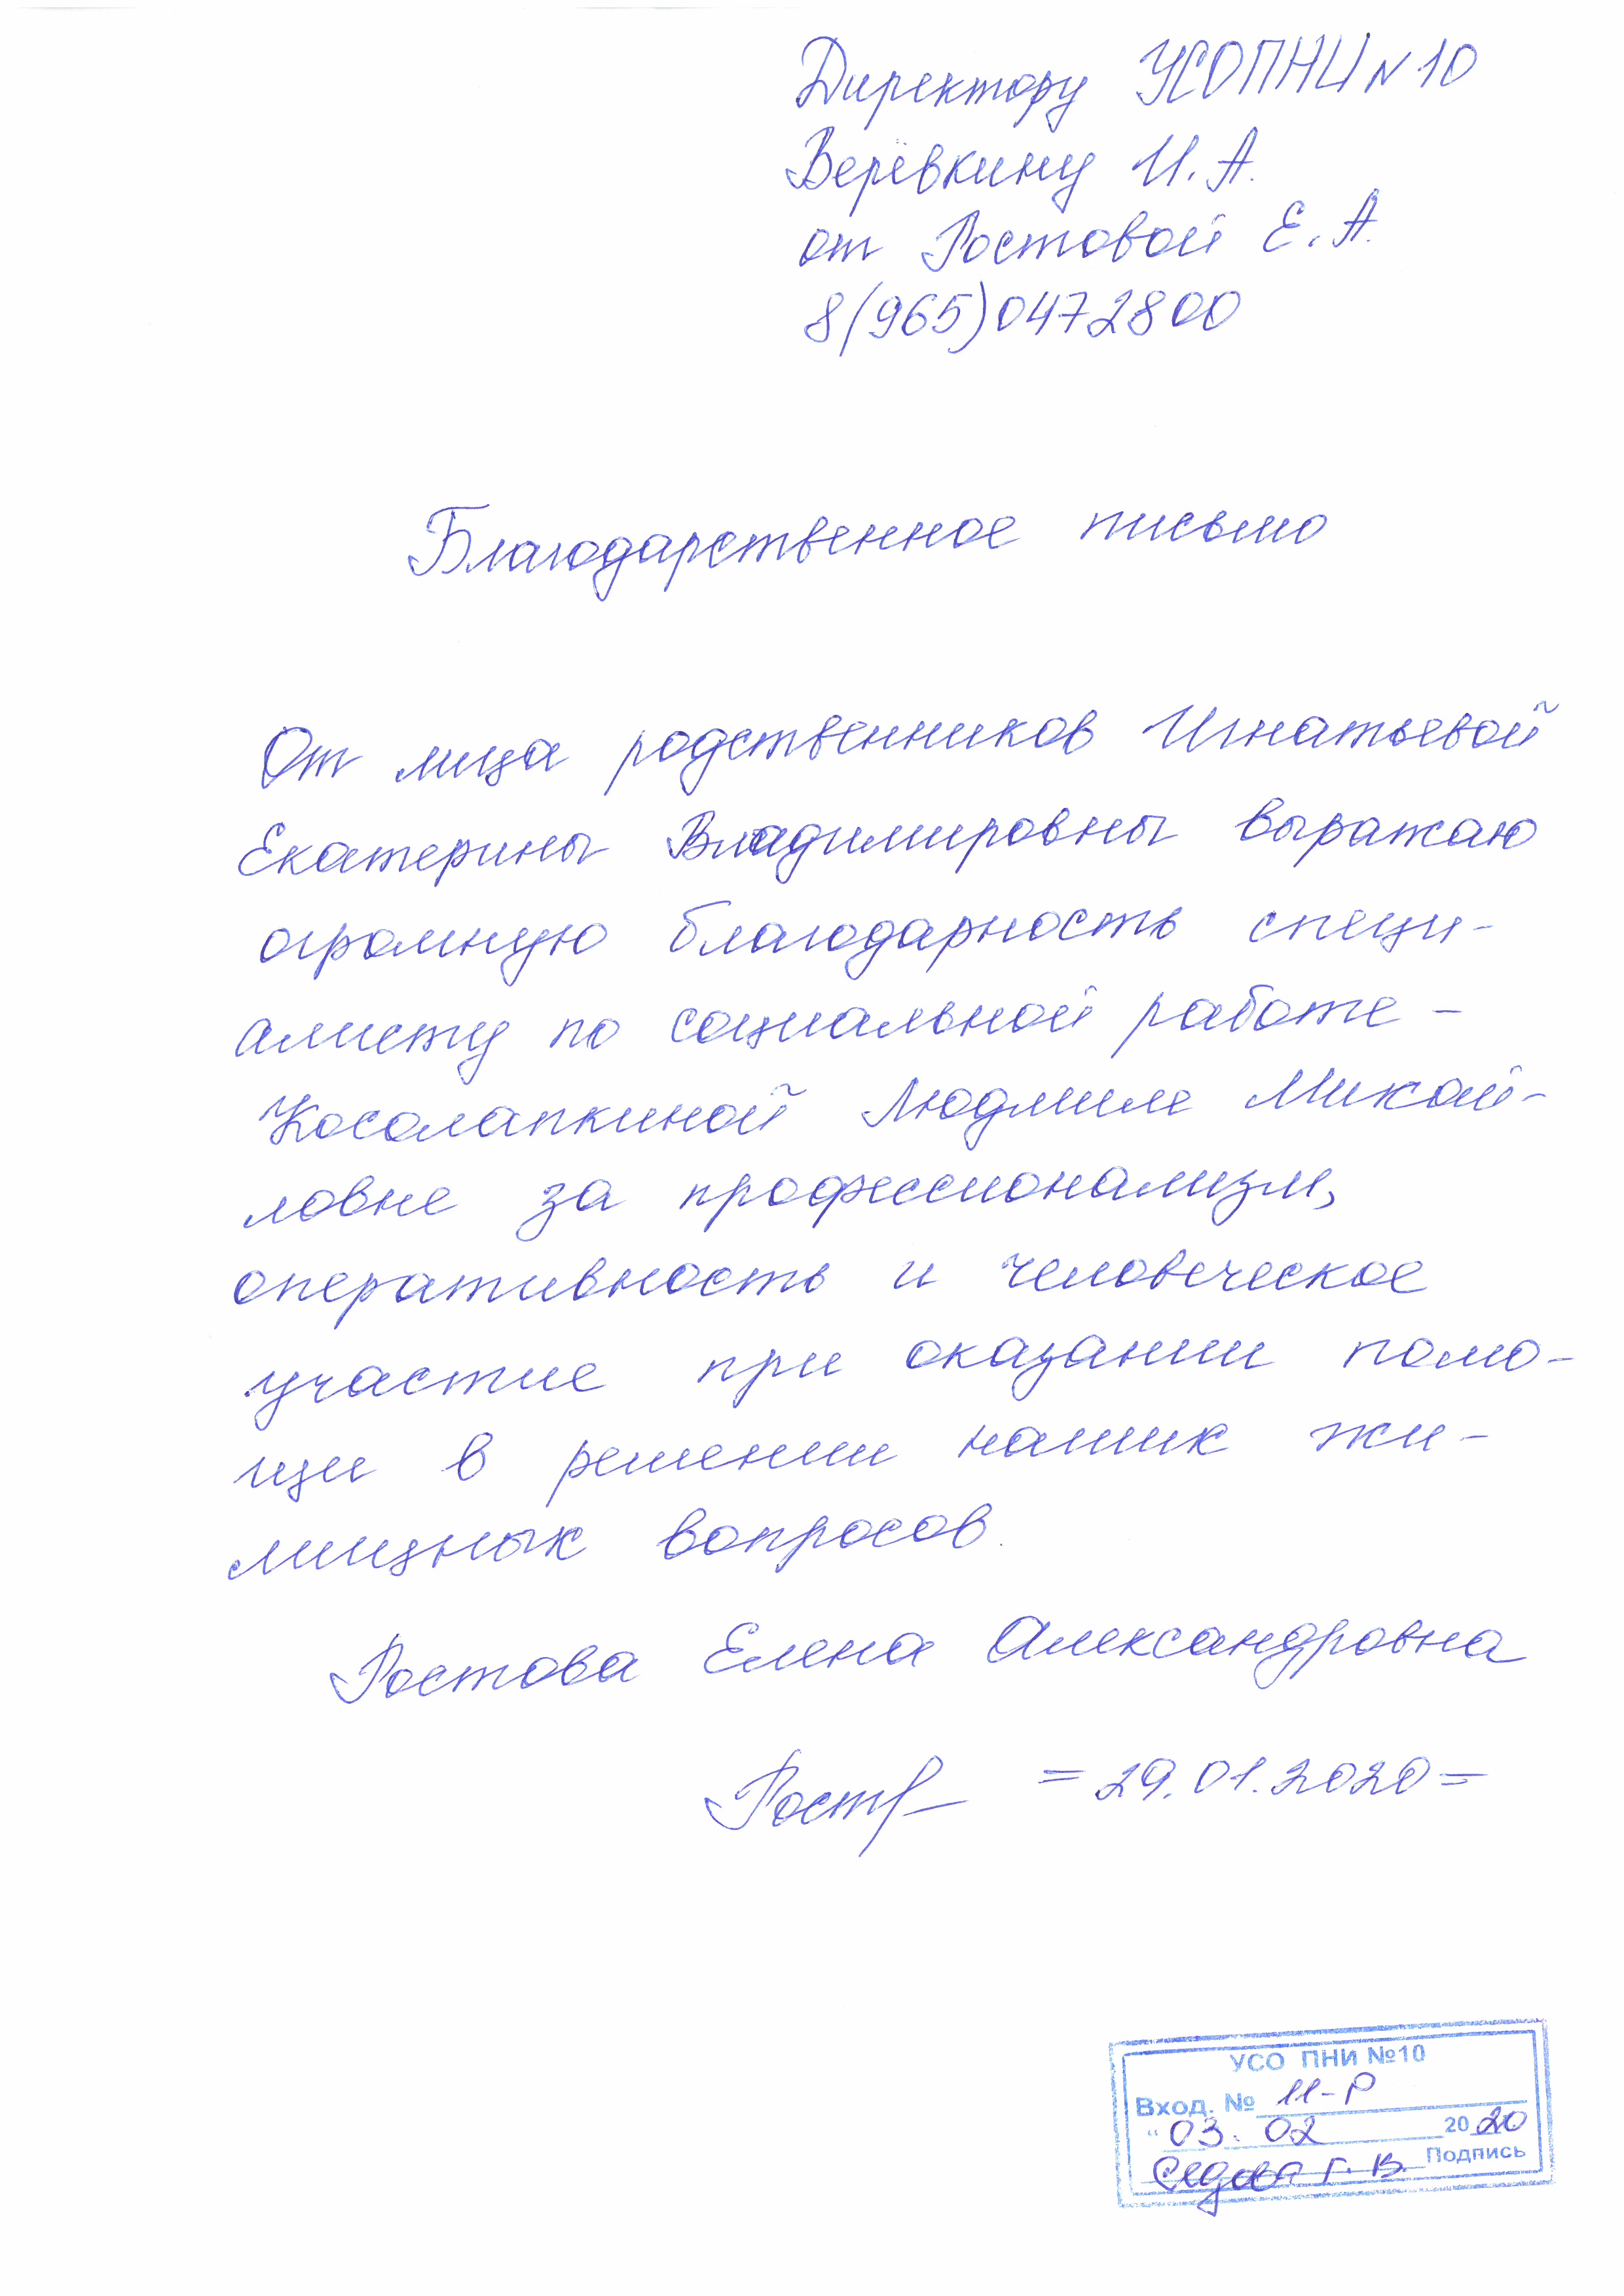 Директору УСОПНИ N 10
Верёвкину И. А.
от Ростовой Е. А.
8(965)0472800
Благодарственное письмо
От лица родственников Игнатьевой
Екатерины Владимировны выражаю
огромную благодарность специ-
алисту по социальной работе -
Косолапкиной Людмиле Михай-
ловне за профессионализм,
оперативность и человеческое
участие при оказании помо-
щи в решении наших жи-
лищных вопросов.
Ростова Елена Александровна
= 29.01.2020 =
УСО ПНИ №10
Вход. № 11-Р
" 03. 02 20 20
Г. В. Подпись